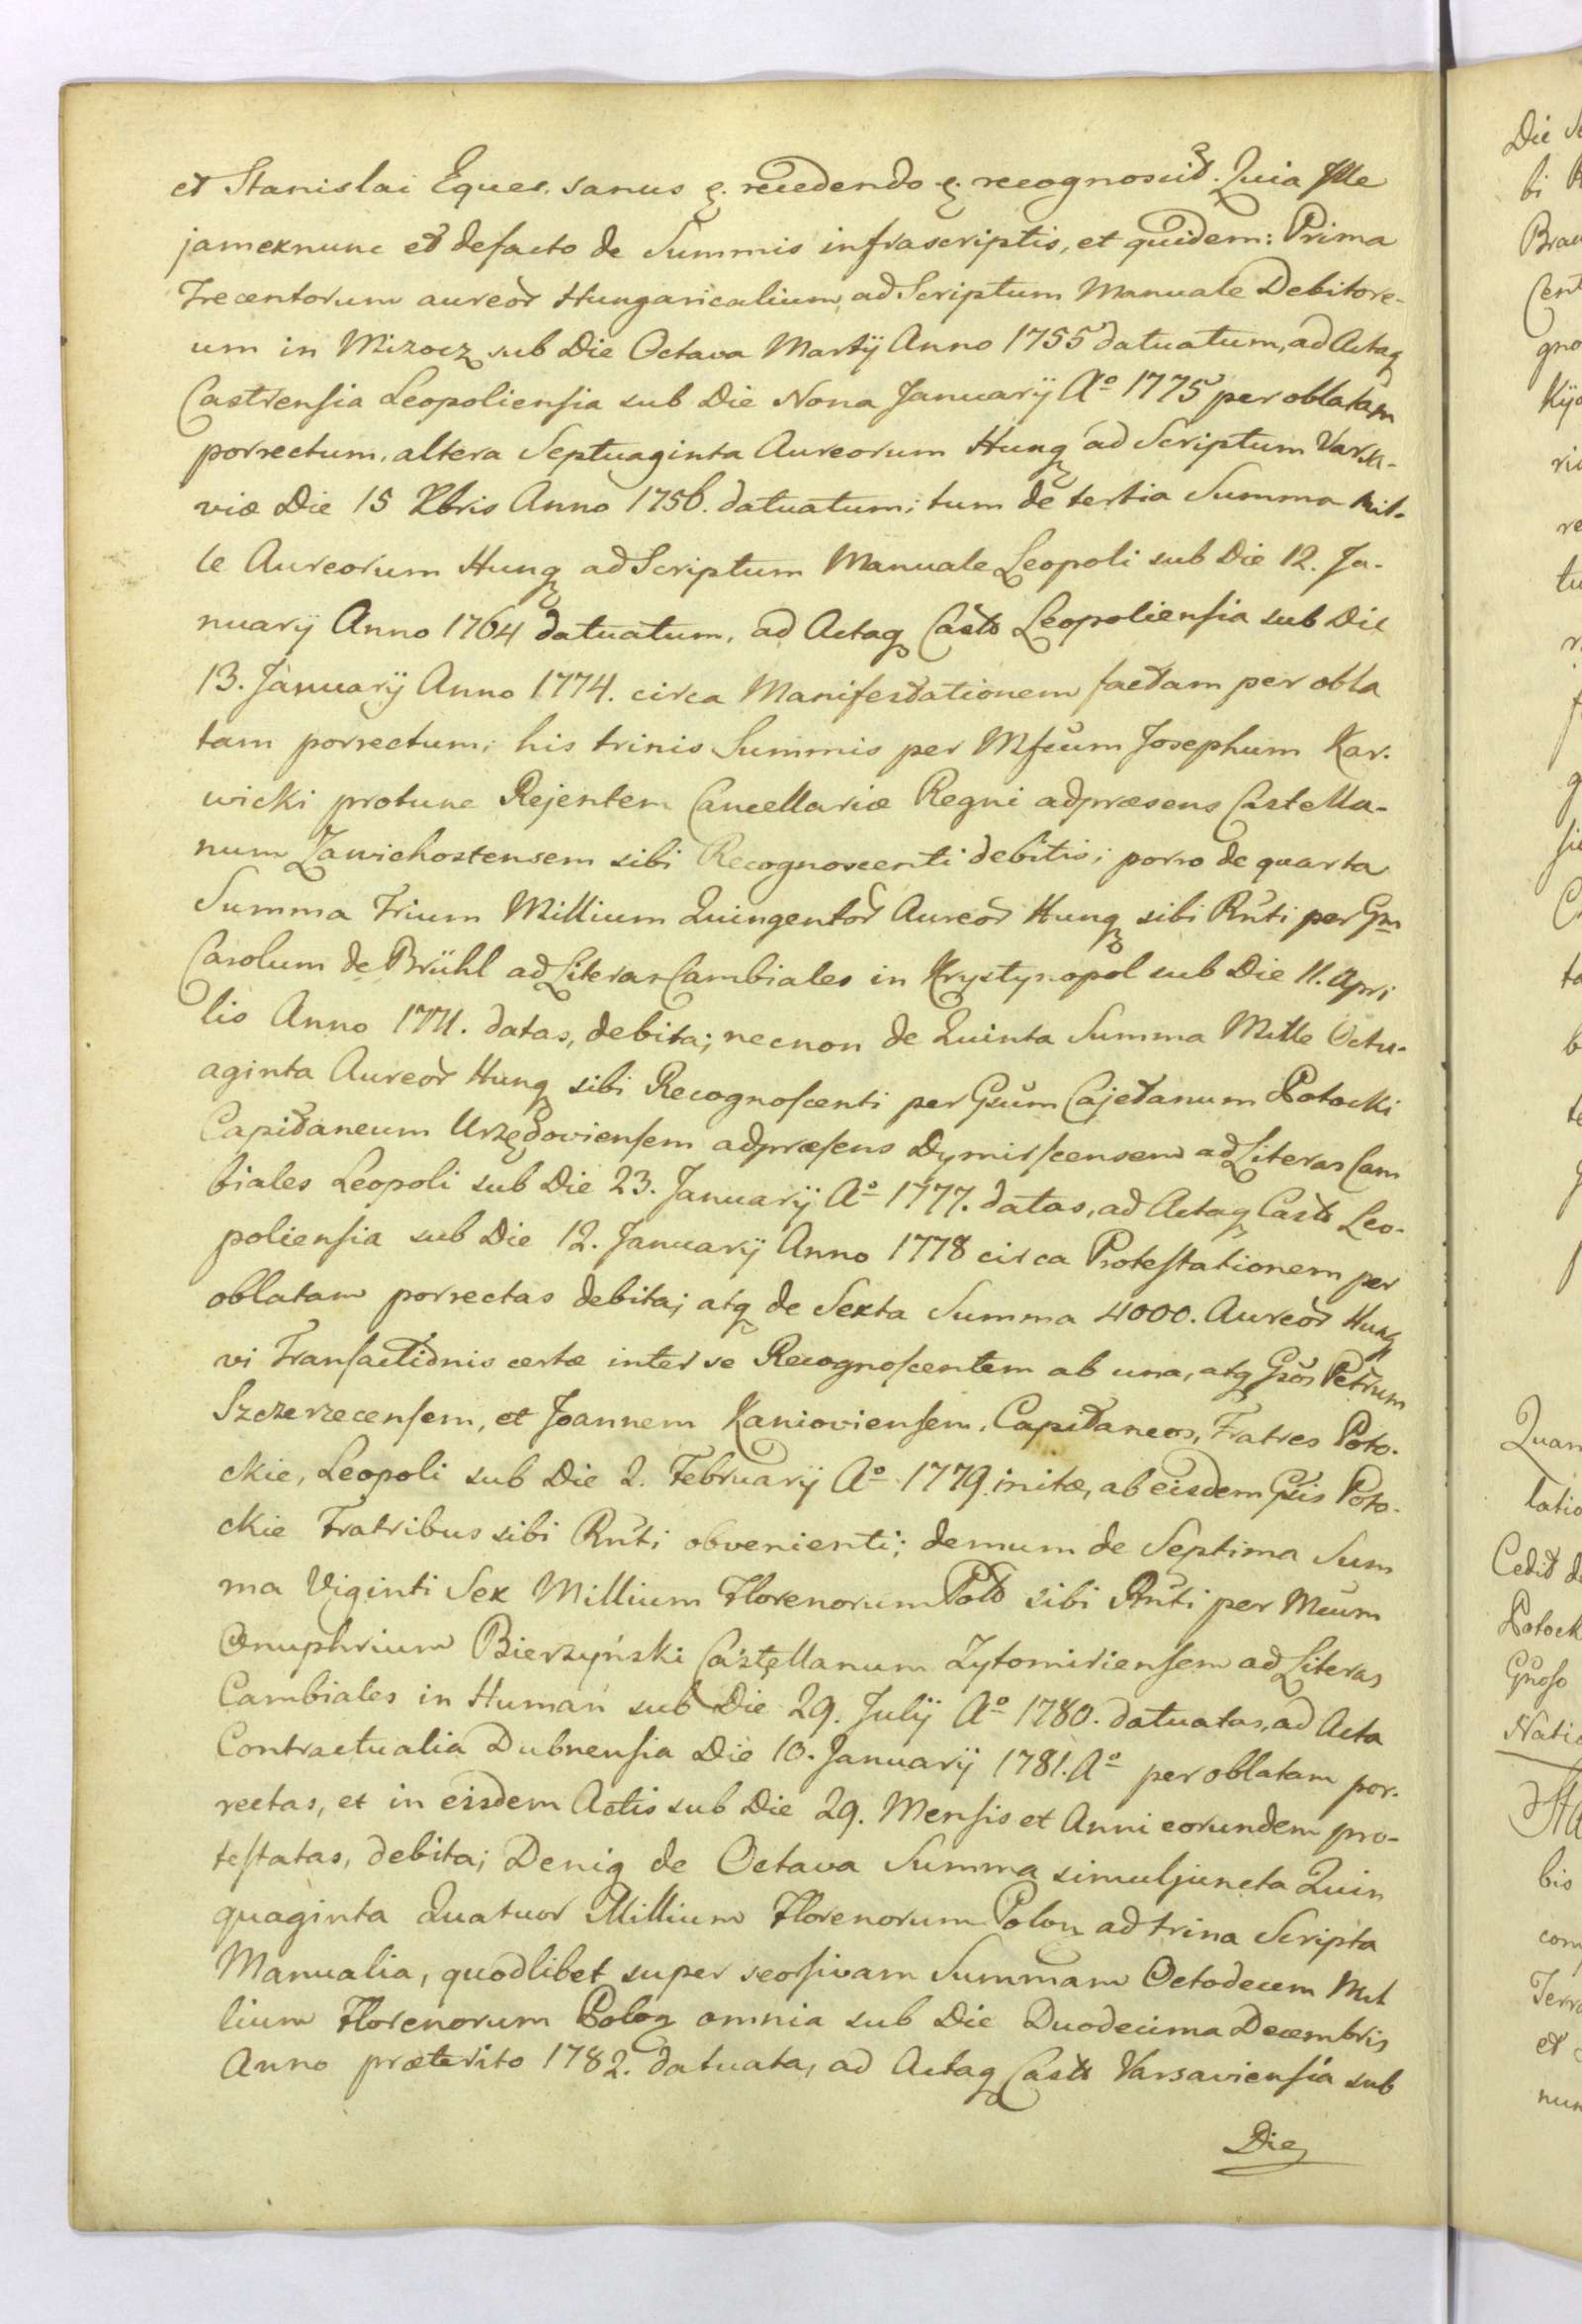 et Stanislai Eques. sanus &. recedendo &. recognoscit. Quia Ille
jamexnunc et defacto de Summis infrascriptis, et quidem: Prima
Trecentorum aureor Hungaricalium, ad Scriptum Manuale Debitore-
um in Mizocz sub Die Octava Martÿ Anno 1755 datuatum, ad Actaq
Castrensia Leopoliensia sub Die Nona Januarÿ Aº 1775 per oblatam
porrectum, altera Septuaginta Aureorum Hung ad Scriptum Varsa-
viæ Die 15 Xbris Anno 1756. datuatum; tum de tertia Summa Mil-
le Aureorum Hung ad Scriptum Manuale Leopoli sub Die 12. Ja-
nuarÿ Anno 1764 datuatum, ad Actaq Casts Leopoliensia sub Die
13. Januarÿ Anno 1774. circa Manifestationem factam per obla
tam porrectum; his trinis Summis per Mfcum Josephum Kar-
wicki protunc Rejentem Cancellariæ Regni adpræsens Castella-
num Zawichostensem sibi Recognoscenti debitis; porro de quarta
Summa Trium Millium Quingentor Aureor Hung sibi Rnti per Gm
Carolum de Brühl ad Literas Cambiales in Krystynopol sub Die 11. Apri
lis Anno 1771. datas, debita; necnon de Quinta Summa Mille Octu-
aginta Aureor Hung sibi Recognoscenti per Gsum Cajetanum Potocki
Capitaneum Urzędoviensem adpræsens Dymirscensem ad Literas Cam
biales Leopoli sub Die 23. Januarÿ Aº 1777. datas, ad Actaq Casts Leo-
poliensia sub Die 12. Januarÿ Anno 1778 circa Protestationem per
oblatam porrectas debita; atq de Sexta Summa 4000. Aureor Hung
vi Transactionis certæ inter se Recognoscentem ab una, atq Gsos Petrum
Szczerzecensem, et Joannem Kanioviensem, Capitaneos, Fratres Poto-
ckie, Leopoli sub Die 2. Februarÿ Aº 1779. initæ, ab eisdem Gsis Poto-
ckie Fratribus sibi Rnti obvenienti; demum de Septima Sum
ma Viginti Sex Millium Florenorum Pols sibi Rnti per Mcum
Onuphrium Bierzyński Castellanum Zytomiriensem ad Literas
Cambiales in Humań sub Die 29. Julÿ Aº 1780. datuatas, ad Acta
Contractualia Dubnensia Die 10. Januarÿ 1781. Aº per oblatam por-
rectas, et in eisdem Actis sub Die 29. Mensis et Anni eorundem pro-
testatas, debita; Deniq de Octava Summa simuljuncta Quin
quaginta Quatuor Millium Florenorum Polon ad trina Scripta
Manualia, quodlibet super seorsivam Summam Octodecem Mil
lium Florenorum Polon omnia sub Die Duodecima Decembris
Anno præterito 1782. datuata, ad Actaq Casts Varsaviensia sub
Die